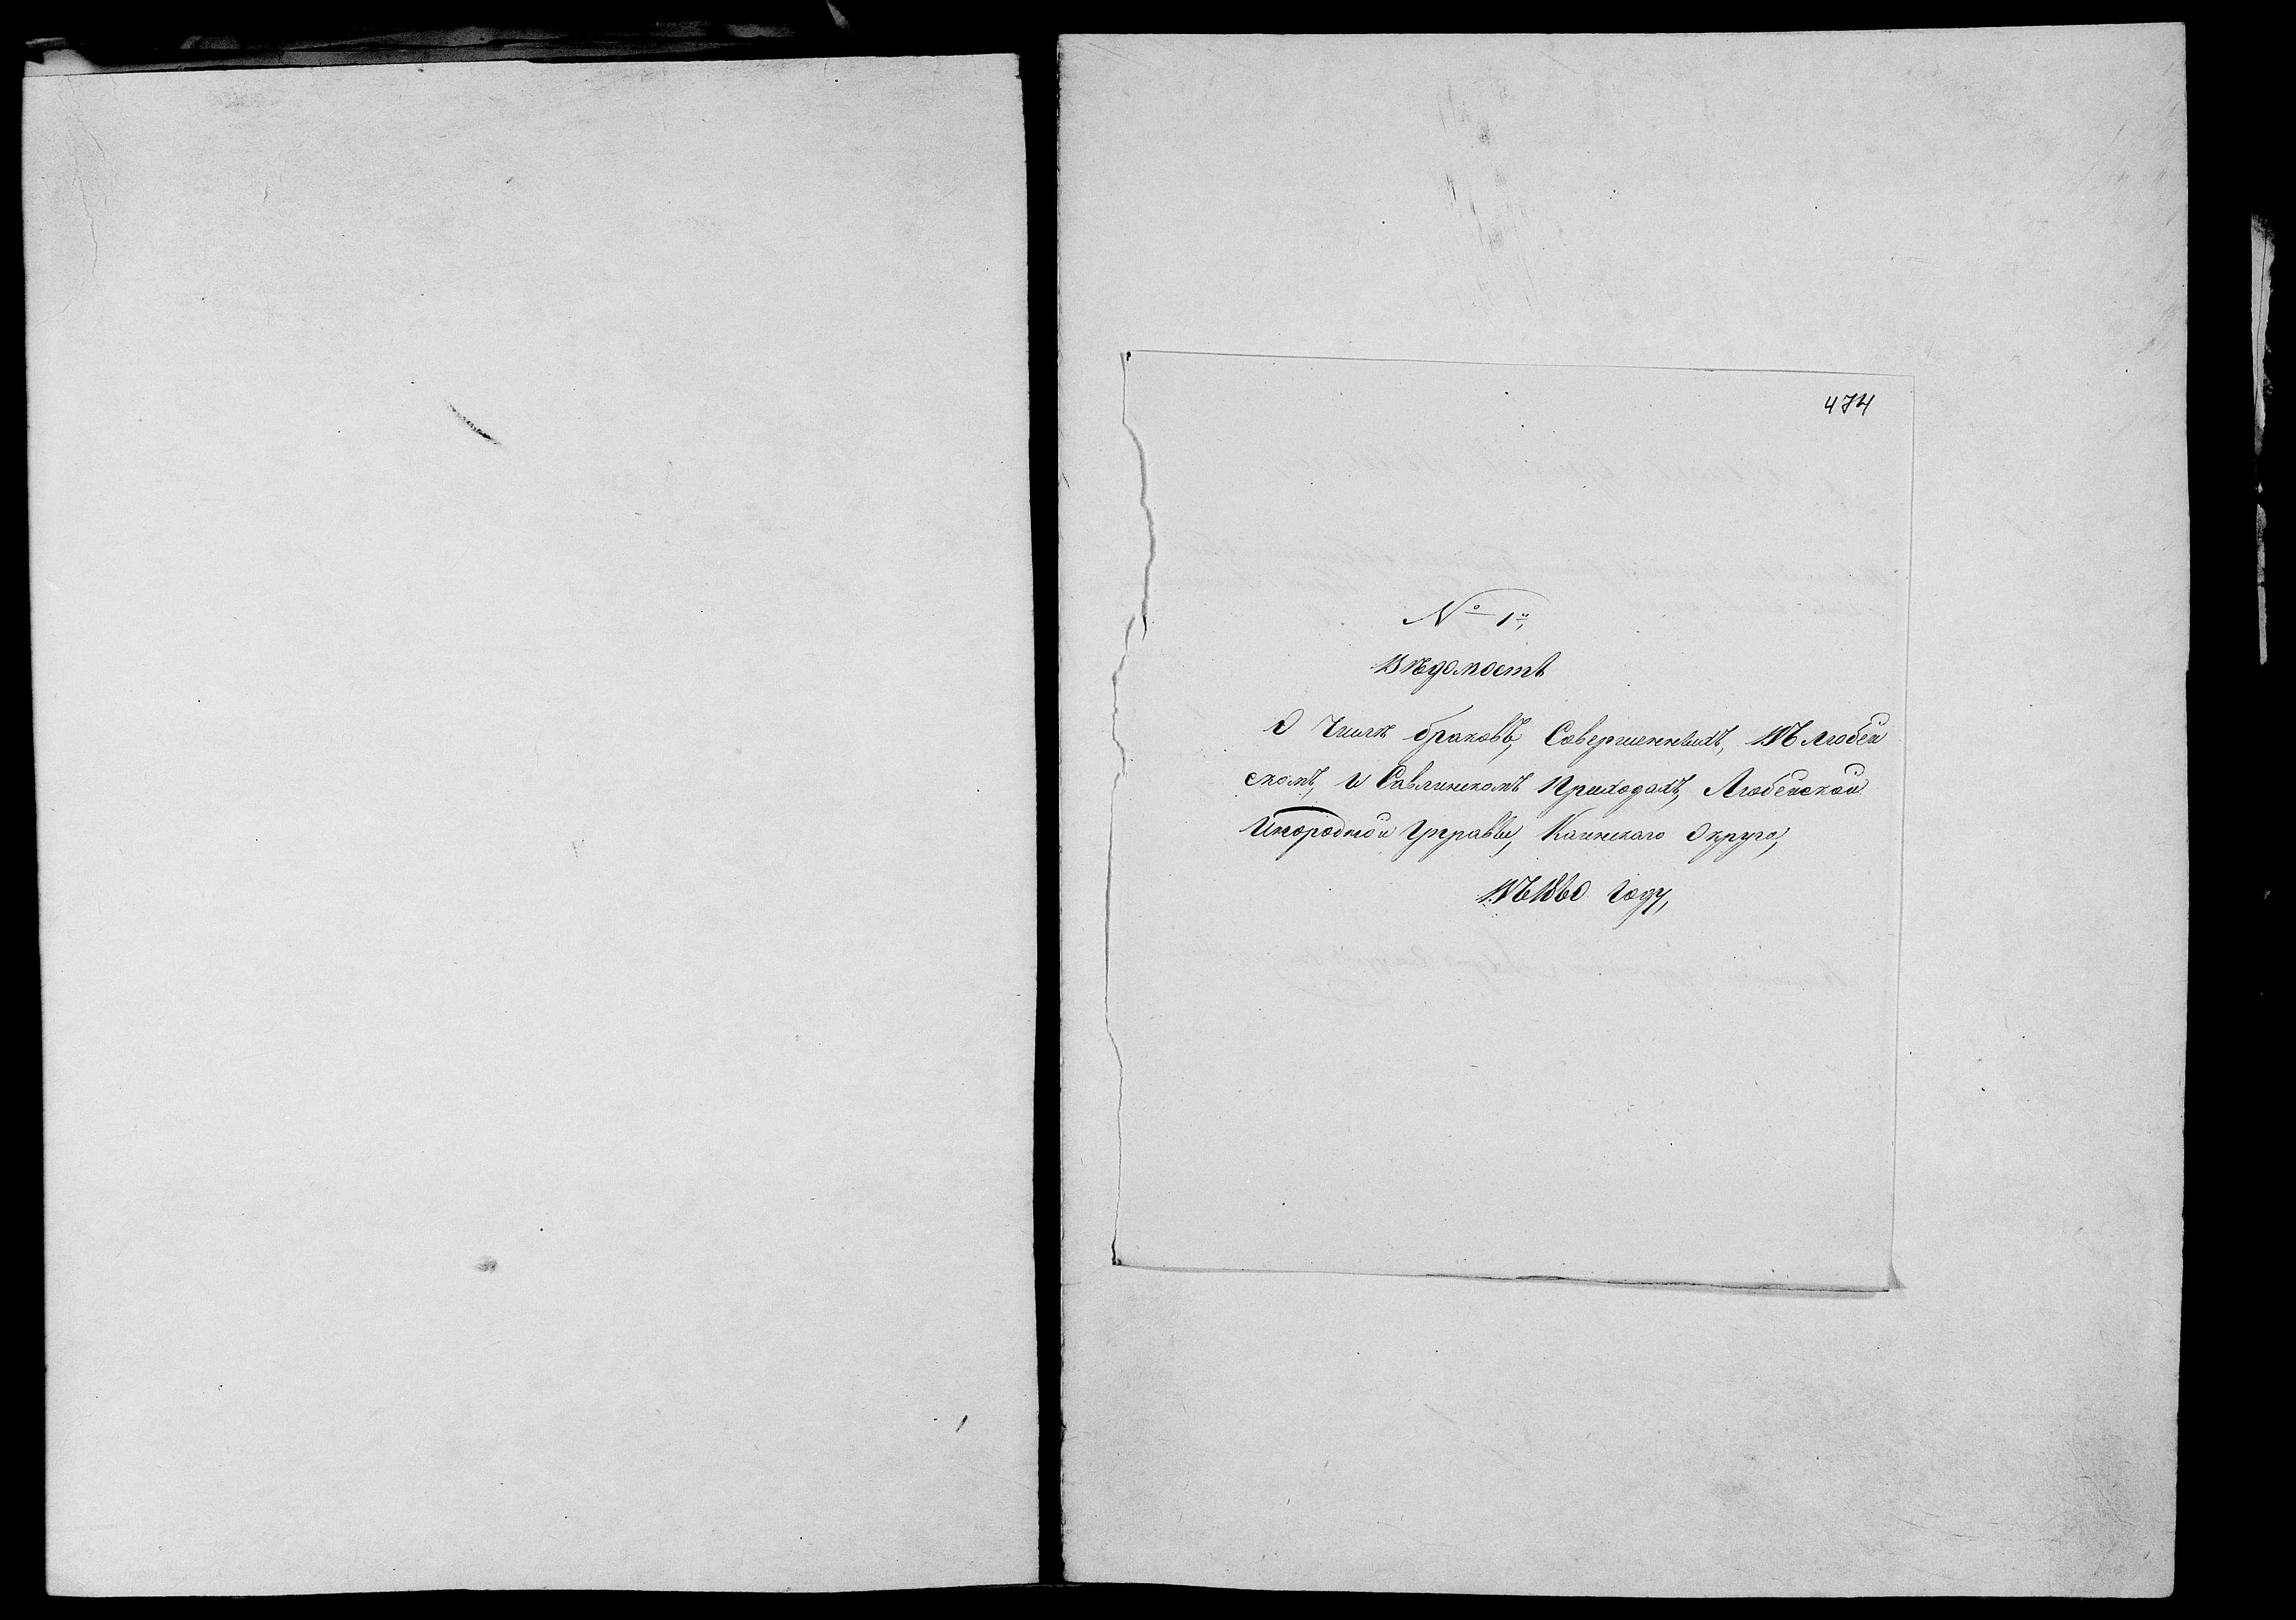 474
№ 1й,
Вѣдомость
О Числѣ браковъ, Совершенныхъ, Въ Любей
скомъ, и Савлинскомъ Приходахъ, Любейской
Инородной Управы, Каинскаго Округа,
Въ 1860 Году,